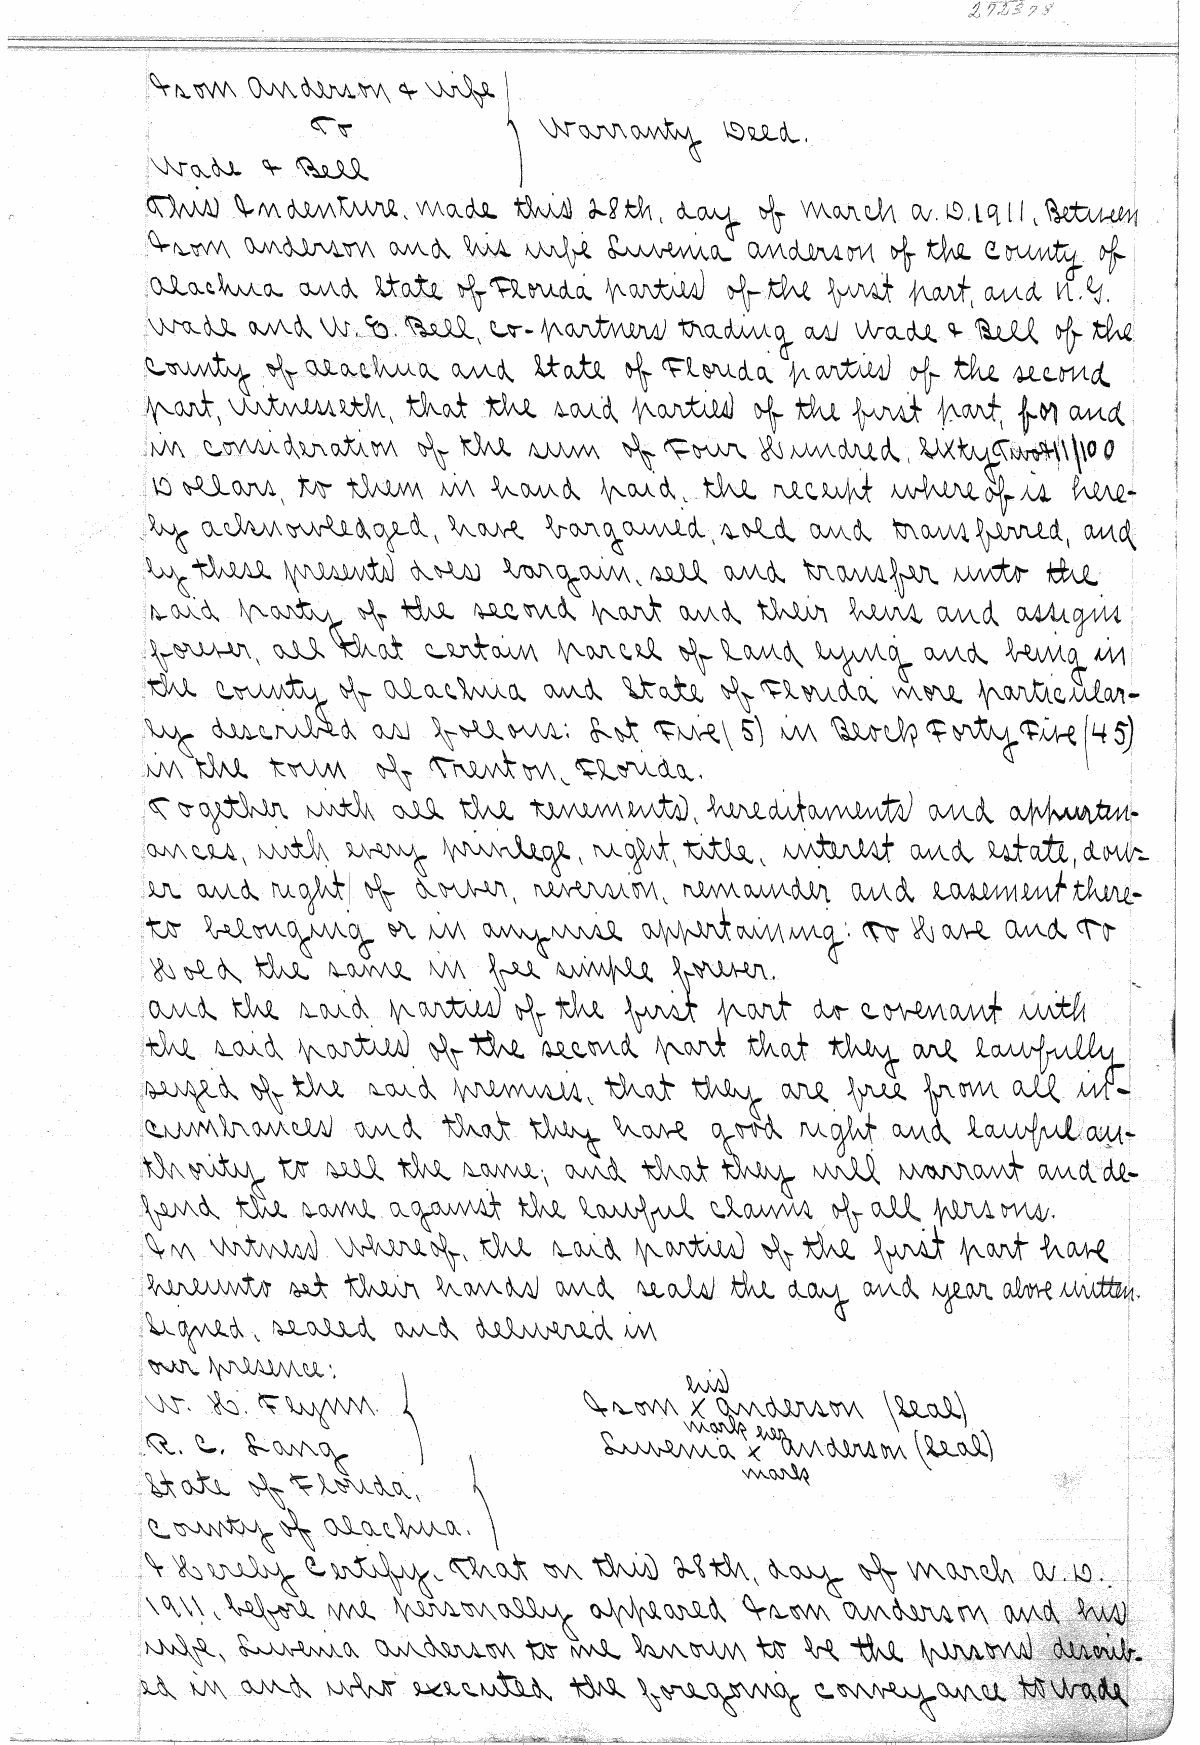 272378
Isom Anderson & wife
To
Warranty Deed.
Wade & Bell
This Indenture, made this 28th, day of March A.D. 1911, Between
Isom Anderson and his wife Luvenia Anderson of the County of
Alachua and State of Florida parties of the first part, and N. G.
Wade and W. E. Bell, co-partners trading as Wade & Bell of the
County of Alachua and State of Florida parties of the second
part, witnesseth, that the said parties of the first part, for and
in consideration of the sum of Four Hundred, Sixty Two & 11/100
Dollars, to them in hand paid, the receipt whereof is here-
by acknowledged, have bargained, sold and transferred, and
by these presents does bargain, sell and transfer unto the
said party of the second part and their heirs and assigns
forever, all that certain parcel of land lying and being in
the County of Alachua and State of Florida more particular-
ly described as follows: Lot Five (5) in Block Forty Five (45)
in the town of Trenton, Florida.
Together with all the tenements, hereditaments and appurten-
ances, with every privilege, right, title, interest and estate, dow-
er and right of dower, reversion, remainder and easement there-
to belonging or in anywise appertaining: To Have and To
Hold the same in fee simple forever.
And the said parties of the first part do covenant with
the said parties of the second part that they are lawfully
seized of the said premises, that they are free from all in-
cumbrances and that they have good right and lawful au-
thority to sell the same; and that they will warrant and de-
fend the same against the lawful claims of all persons.
In witness whereof, the said parties of the first part have
hereunto set their hands and seals the day and year above written.
Signed, sealed and delivered in
our presence:
his
W. H. Flynn. Isom x Anderson (Seal)
mark her
R. C. Lang Luvenia x Anderson (Seal)
mark
State of Florida,
County of Alachua.
I Hereby Certify, That on this 28th, day of March A.D.
1911, before me personally appeared Isom Anderson and his
wife, Luvenia Anderson to me known to be the persons describ-
ed in and who executed the foregoing conveyance to Wade